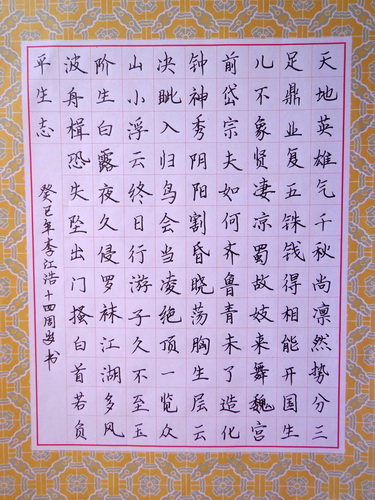 天地英雄气千秋尚凛然势分三
足鼎业复五铢钱得相能开国生
儿不象贤凄凉蜀故妓来舞魏宫
前岱宗夫如何齐鲁青未了造化
钟神秀阴阳割昏晓荡胸生层云
决眦入归鸟会当凌绝顶一览众
山小浮云终日行游子久不至玉
阶生白露夜久侵罗袜江湖多风
波舟楫恐失坠出门搔白首若负
平生志
癸巳年李江浩十四周岁书